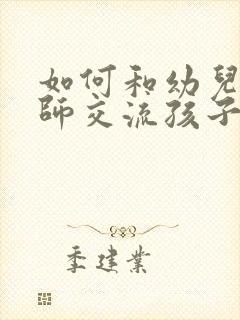 如何和幼兒
師交流孩子
季建業